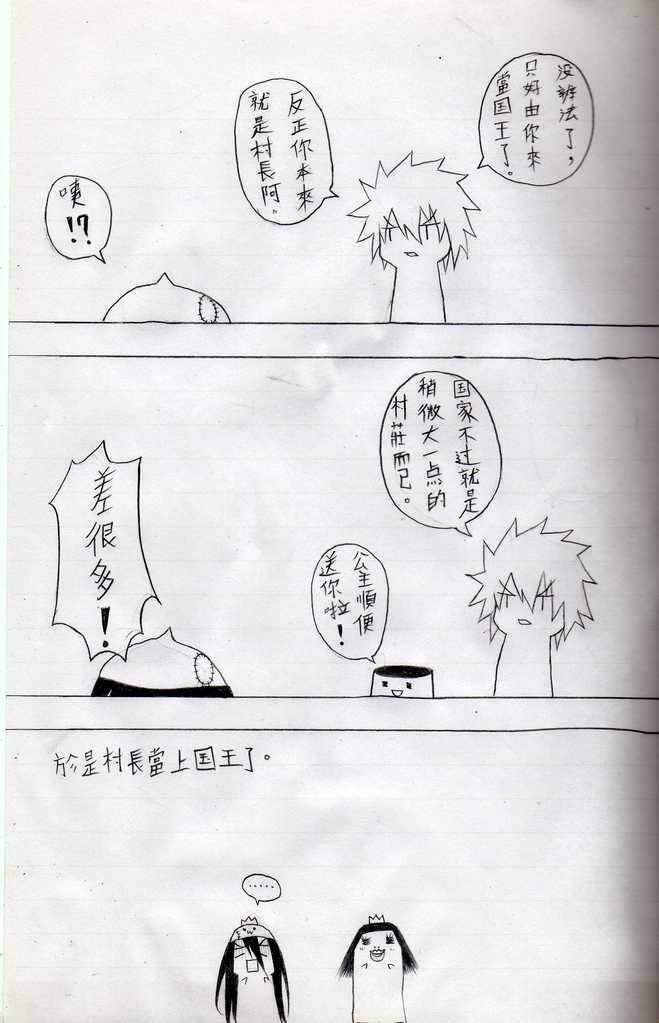 沒辦法了，
只好由你來
當国王了。
反正你本來
就是村長阿。
咦
!?
国家不过就是
稍微大一点的
村莊而已。
公主順便
送你啦！
差很多！
於是村長當上国王了。
.....